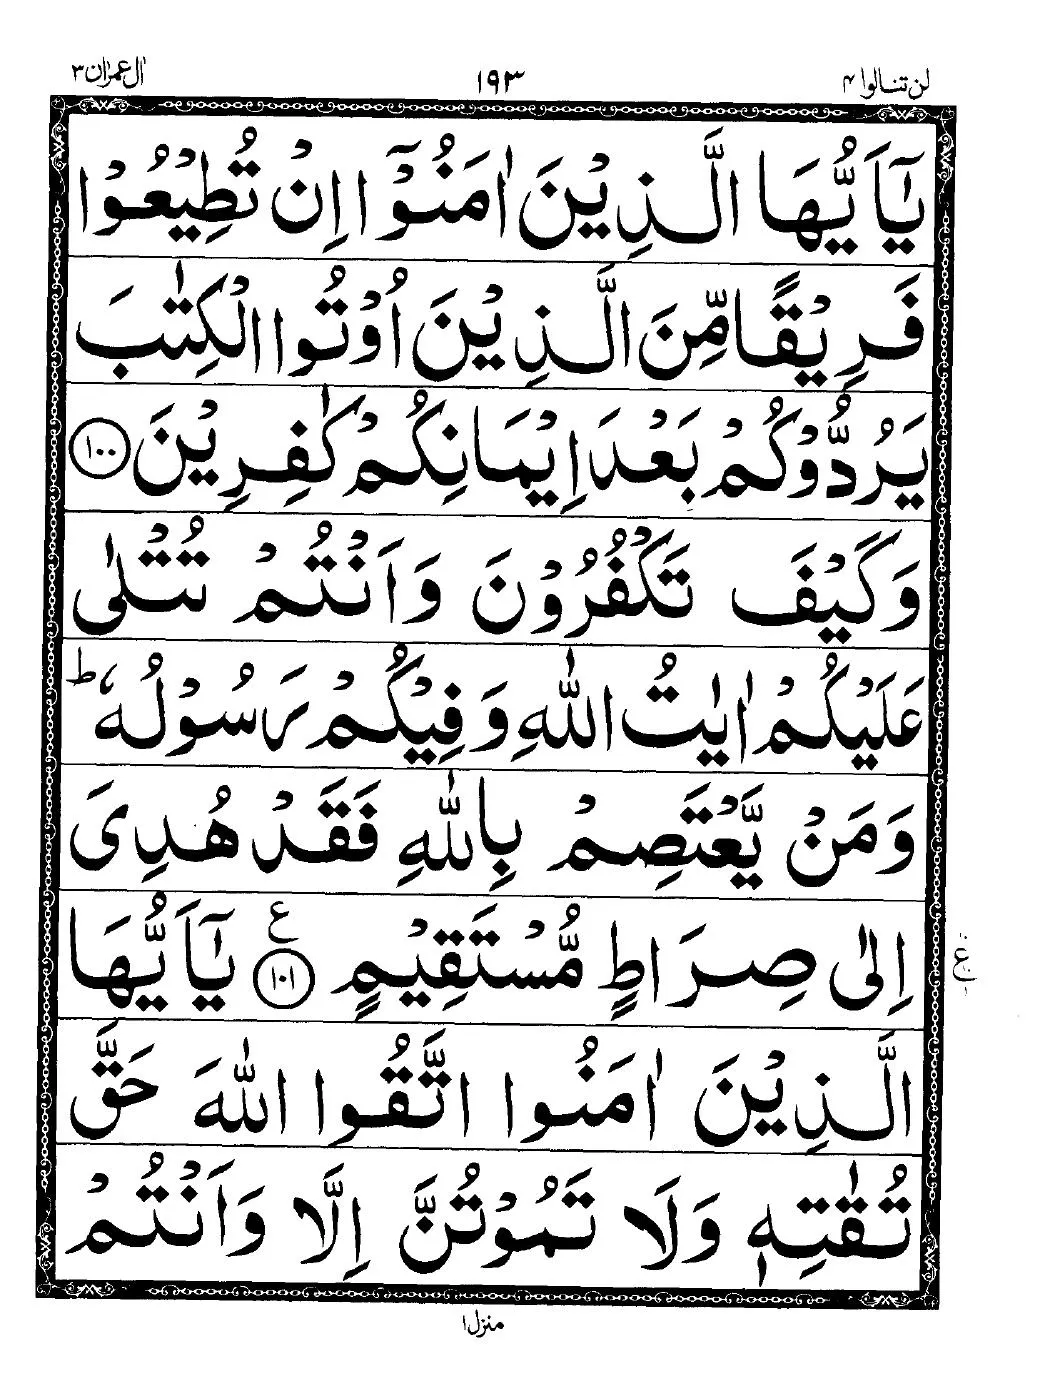 لن تنالوا ۴ ۱۹۳ اٰل عمرٰن ۳
يٰۤاَيُّهَا الَّذِيْنَ اٰمَنُوْۤا اِنْ تُطِيْعُوْا
فَرِيْقًا مِّنَ الَّذِيْنَ اُوْتُوا الْكِتٰبَ
يَرُدُّوْكُمْ بَعْدَ اِيْمَانِكُمْ كٰفِرِيْنَ ۱۰۰
وَكَيْفَ تَكْفُرُوْنَ وَاَنْتُمْ تُتْلٰى
عَلَيْكُمْ اٰيٰتُ اللّٰهِ وَفِيْكُمْ رَسُوْلُهٗ ط
وَمَنْ يَّعْتَصِمْ بِاللّٰهِ فَقَدْ هُدِىَ
اِلٰى صِرَاطٍ مُّسْتَقِيْمٍ ۱۰۱ ع يٰۤاَيُّهَا
ع
الَّذِيْنَ اٰمَنُوا اتَّقُوا اللّٰهَ حَقَّ
تُقٰتِهٖ وَلَا تَمُوْتُنَّ اِلَّا وَاَنْتُمْ
منزل ۱